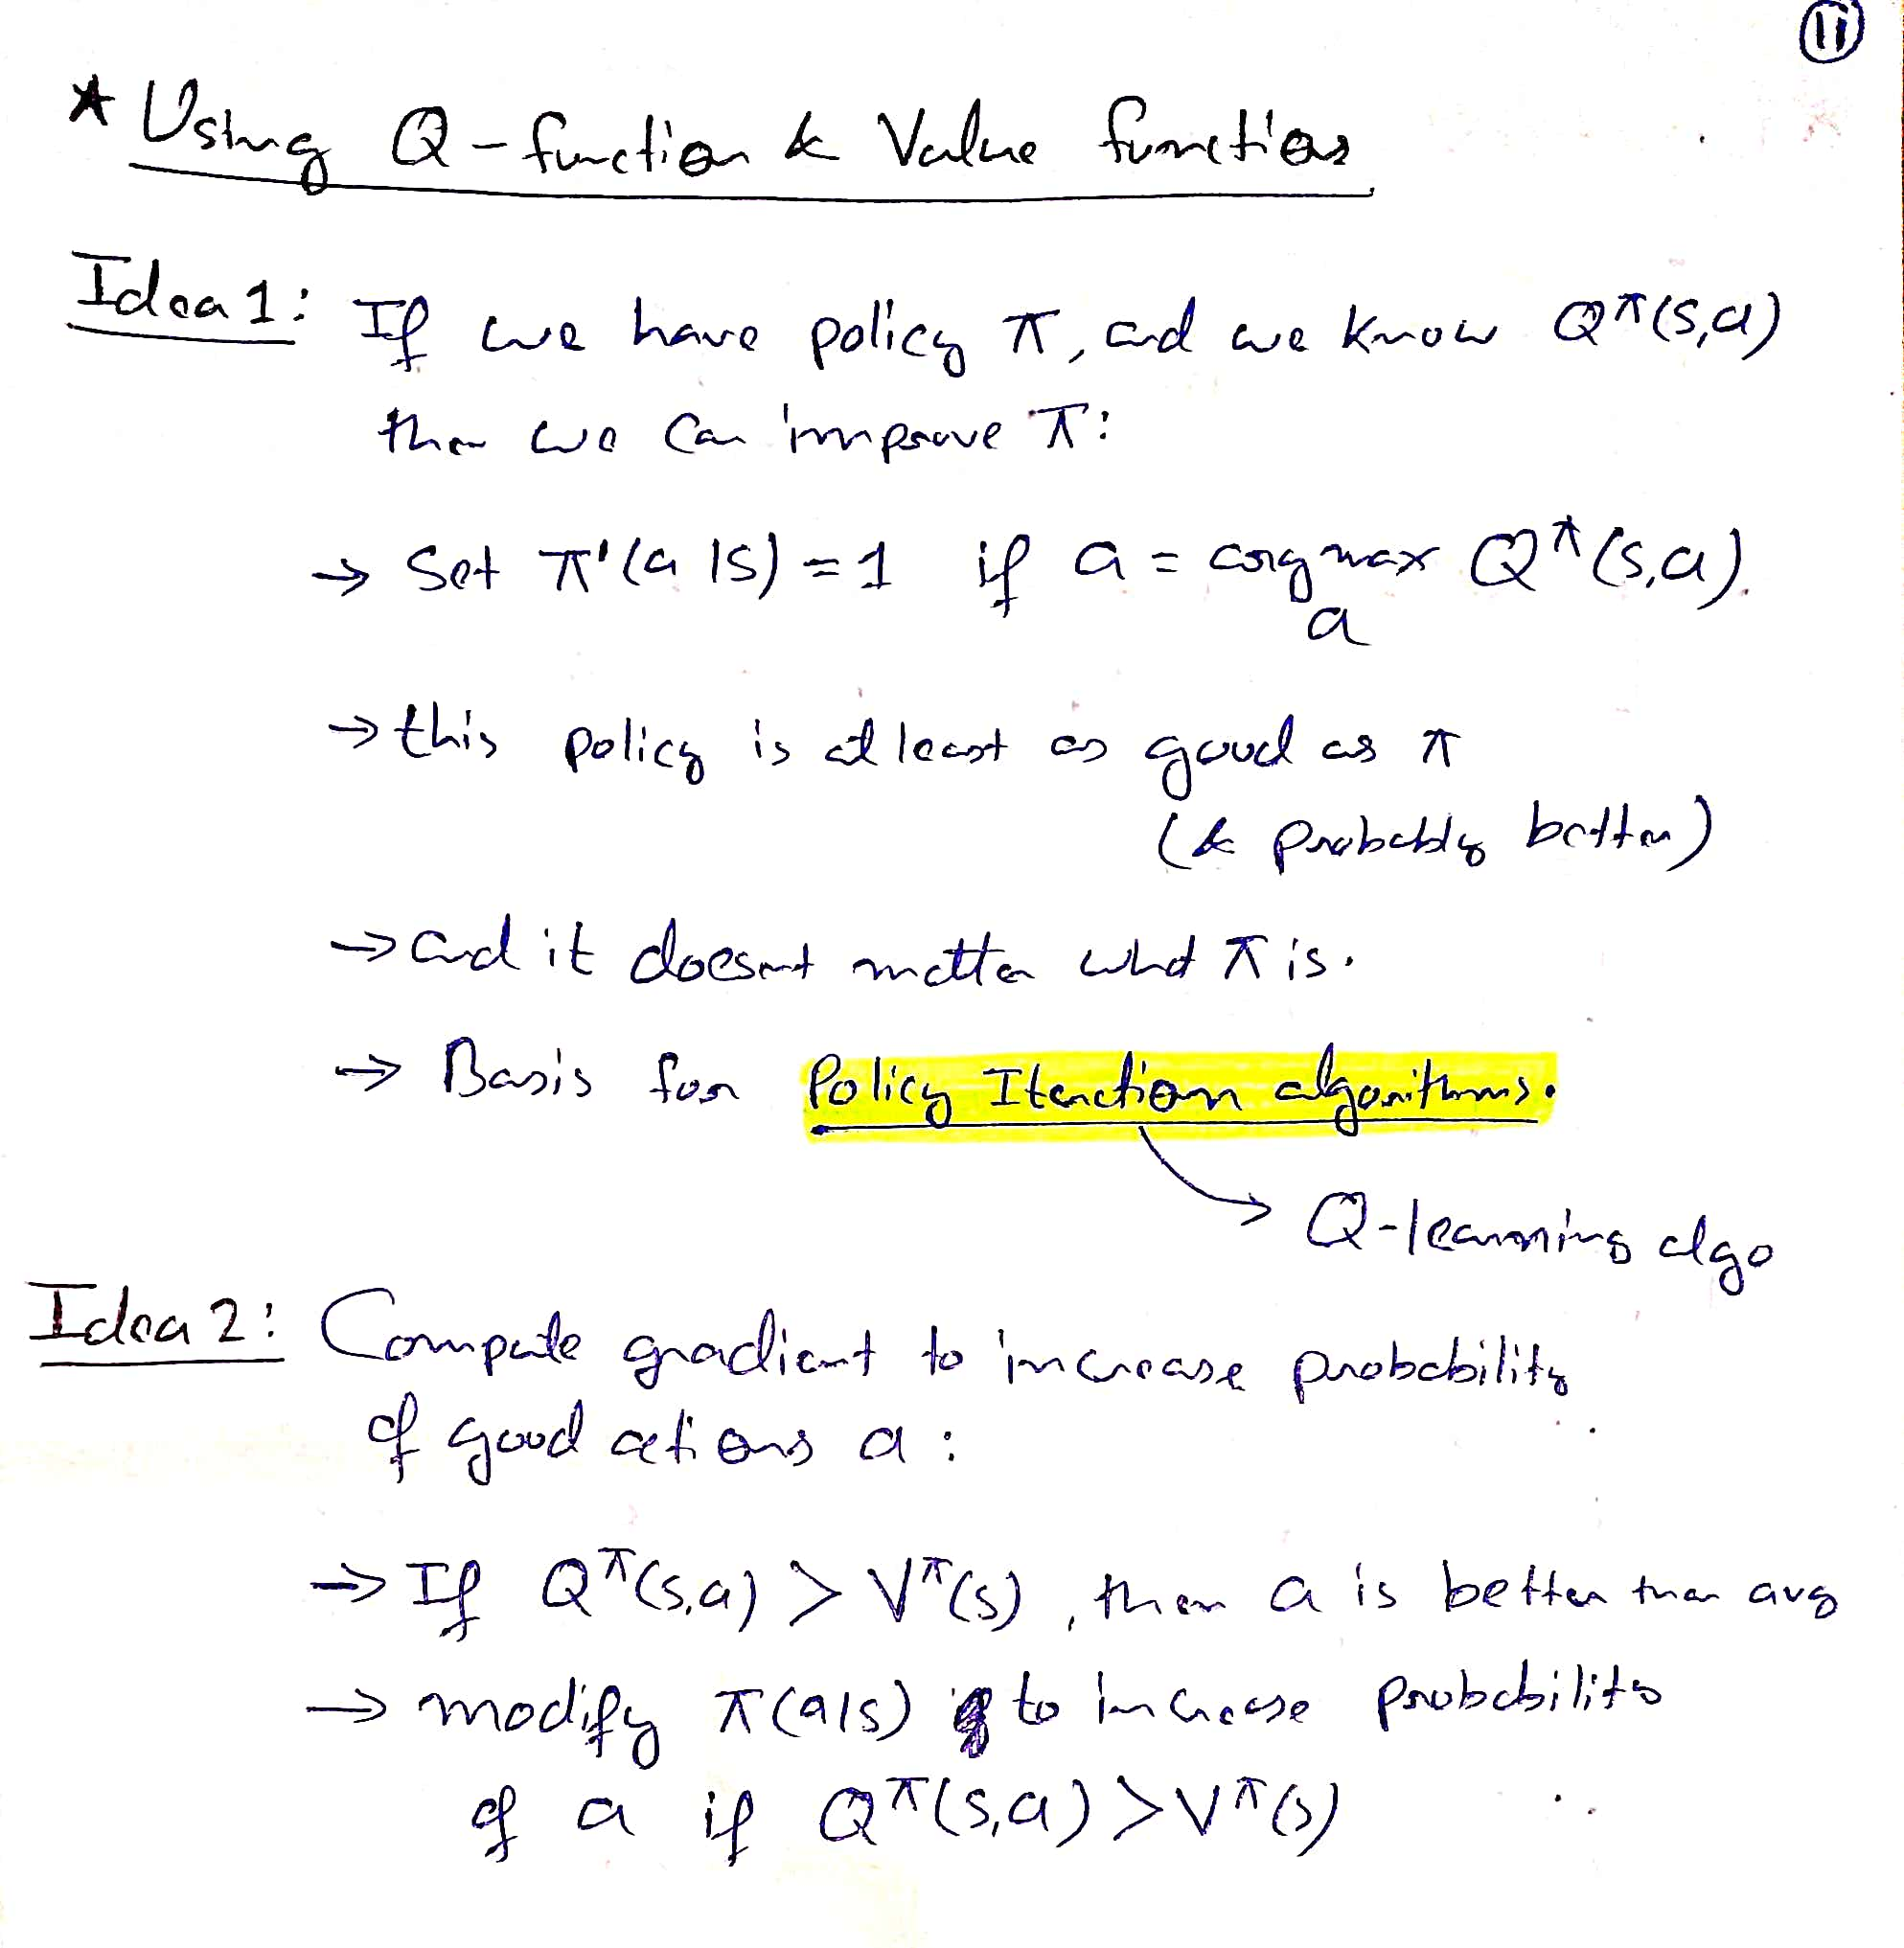 11
* Using Q-function & Value functions
Idea 1: If we have policy π, and we know Q^π(s,a)
then we can improve π:
→ Set π'(a|s) = 1 if a = argmax Q^π(s,a).
a
→ this policy is at least as good as π
(& probably better)
→ and it doesnt matter what π is.
→ Basis for Policy Iteration algorithms.
→ Q-learning algo
Idea 2: Compute gradient to increase probability
of good actions a:
→ If Q^π(s,a) > V^π(s), then a is better than avg
→ modify π(a|s) to increase probability
of a if Q^π(s,a) > V^π(s)